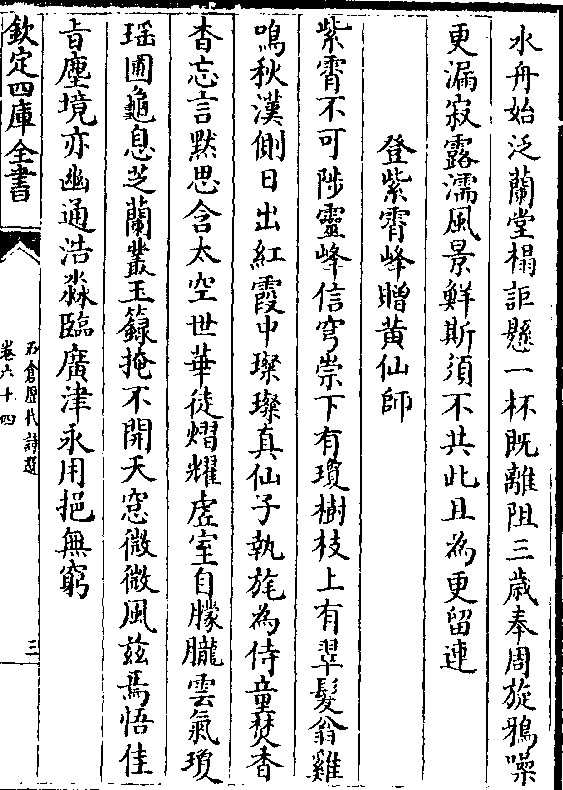 水舟始泛蘭堂榻詎懸一杯既離阻三歳奉周旋鴉噪
更漏寂露濡風景鮮斯須不共此且為更留連
登紫霄峰贈黄仙師
紫霄不可陟靈峰信穹崇下有瓊樹枝上有翠髮翁雞
鳴秋漢側日出紅霞中璨璨真仙子執旄為侍童焚香
杳忘言黙思含太空世華徒熠耀虚室自朦朧雲氣瓊
瑶圃龜息芝蘭叢玉籙掩不開天窓微微風兹焉悟佳
㫖塵境亦幽通浩淼臨廣津永用挹無窮
欽定四庫全書
石倉歴代詩選
卷六十四
三